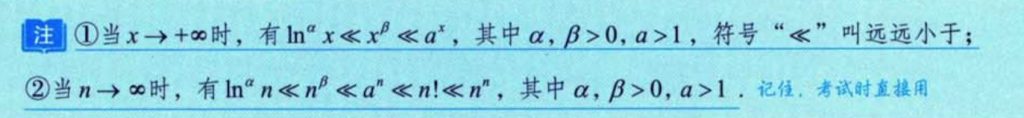 注 ①当 x → +∞时，有 lnᵅ x ≪ xᵝ ≪ aˣ，其中 α, β>0, a>1，符号“≪”叫远远小于；
②当 n → ∞时，有 lnᵅ n ≪ nᵝ ≪ aⁿ ≪ n! ≪ nⁿ，其中 α, β>0, a>1．记住，考试时直接用